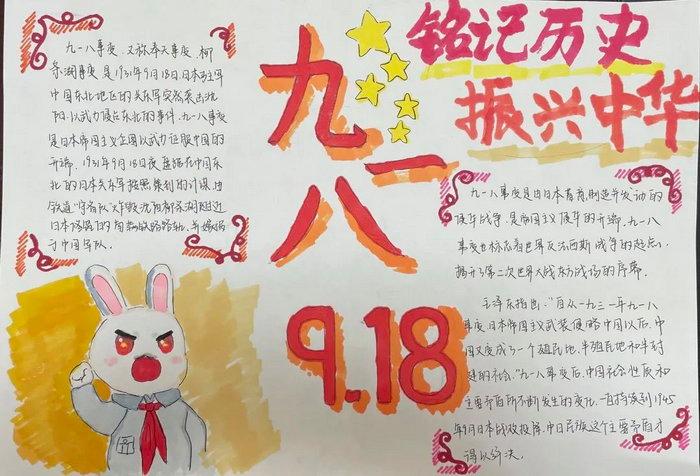 铭记历史
振兴中华
九一八
9.18
九一八事变，又称奉天事变、柳
条湖事变是1931年9月18日日本驻军
中国东北地区的关东军突然袭击沈
阳，以武力侵占东北的事件。九一八事变
是日本帝国主义企图以武力征服中国的
开端。1931年9月18日夜盘踞在中国东
北的日本关东军按照策划的计谋由
铁道"守备队"炸毁沈阳柳条湖附近
日本修筑的南满铁路路轨，并嫁祸
于中国军队。
九一八事变是由日本蓄意制造并发动的
侵华战争，是帝国主义侵华的开端。九一八
事变也标志着世界反法西斯战争的起点，
揭开了第二次世界大战东方战场的序幕。
毛泽东指出："自从一九三一年九一八
事变日本帝国主义武装侵略中国以后，中
国又变成了一个殖民地、半殖民地和半封
建的社会。"九一八事变后，中国社会性质和
主要矛盾所不断发生的变化，一直持续到1945
年9月日本战败投降，中日民族这个主要矛盾才
得以解决。